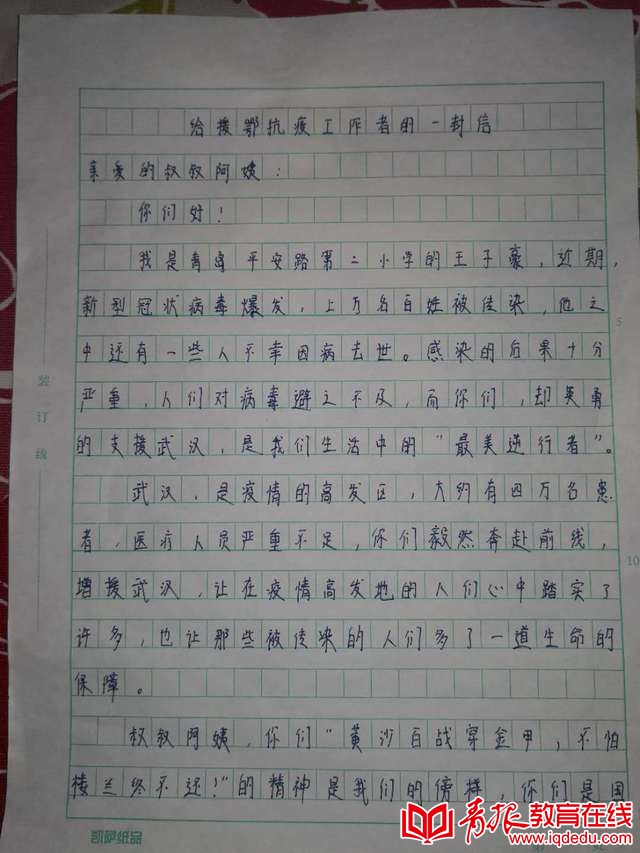 给援鄂抗疫工作者的一封信
亲爱的叔叔阿姨：
你们好！
我是青岛平安路第二小学的王子豪，近期，
新型冠状病毒爆发，上万名百姓被传染，他之
中还有一些人不幸因病去世。感染的后果十分
严重，人们对病毒避之不及，而你们，却英勇
的支援武汉，是我们生活中的“最美逆行者”。
武汉，是疫情的高发区，大约有四万名患
者，医疗人员严重不足，你们毅然奔赴前线，
增援武汉，让在疫情高发地的人们心中踏实了
许多，也让那些被传染的人们多了一道生命的
保障。
叔叔阿姨，你们“黄沙百战穿金甲，不怕
楼兰终不还！”的精神是我们的榜样，你们是国
装订线
5
10
凯萨纸品
青报教育在线
www.iqdedu.com